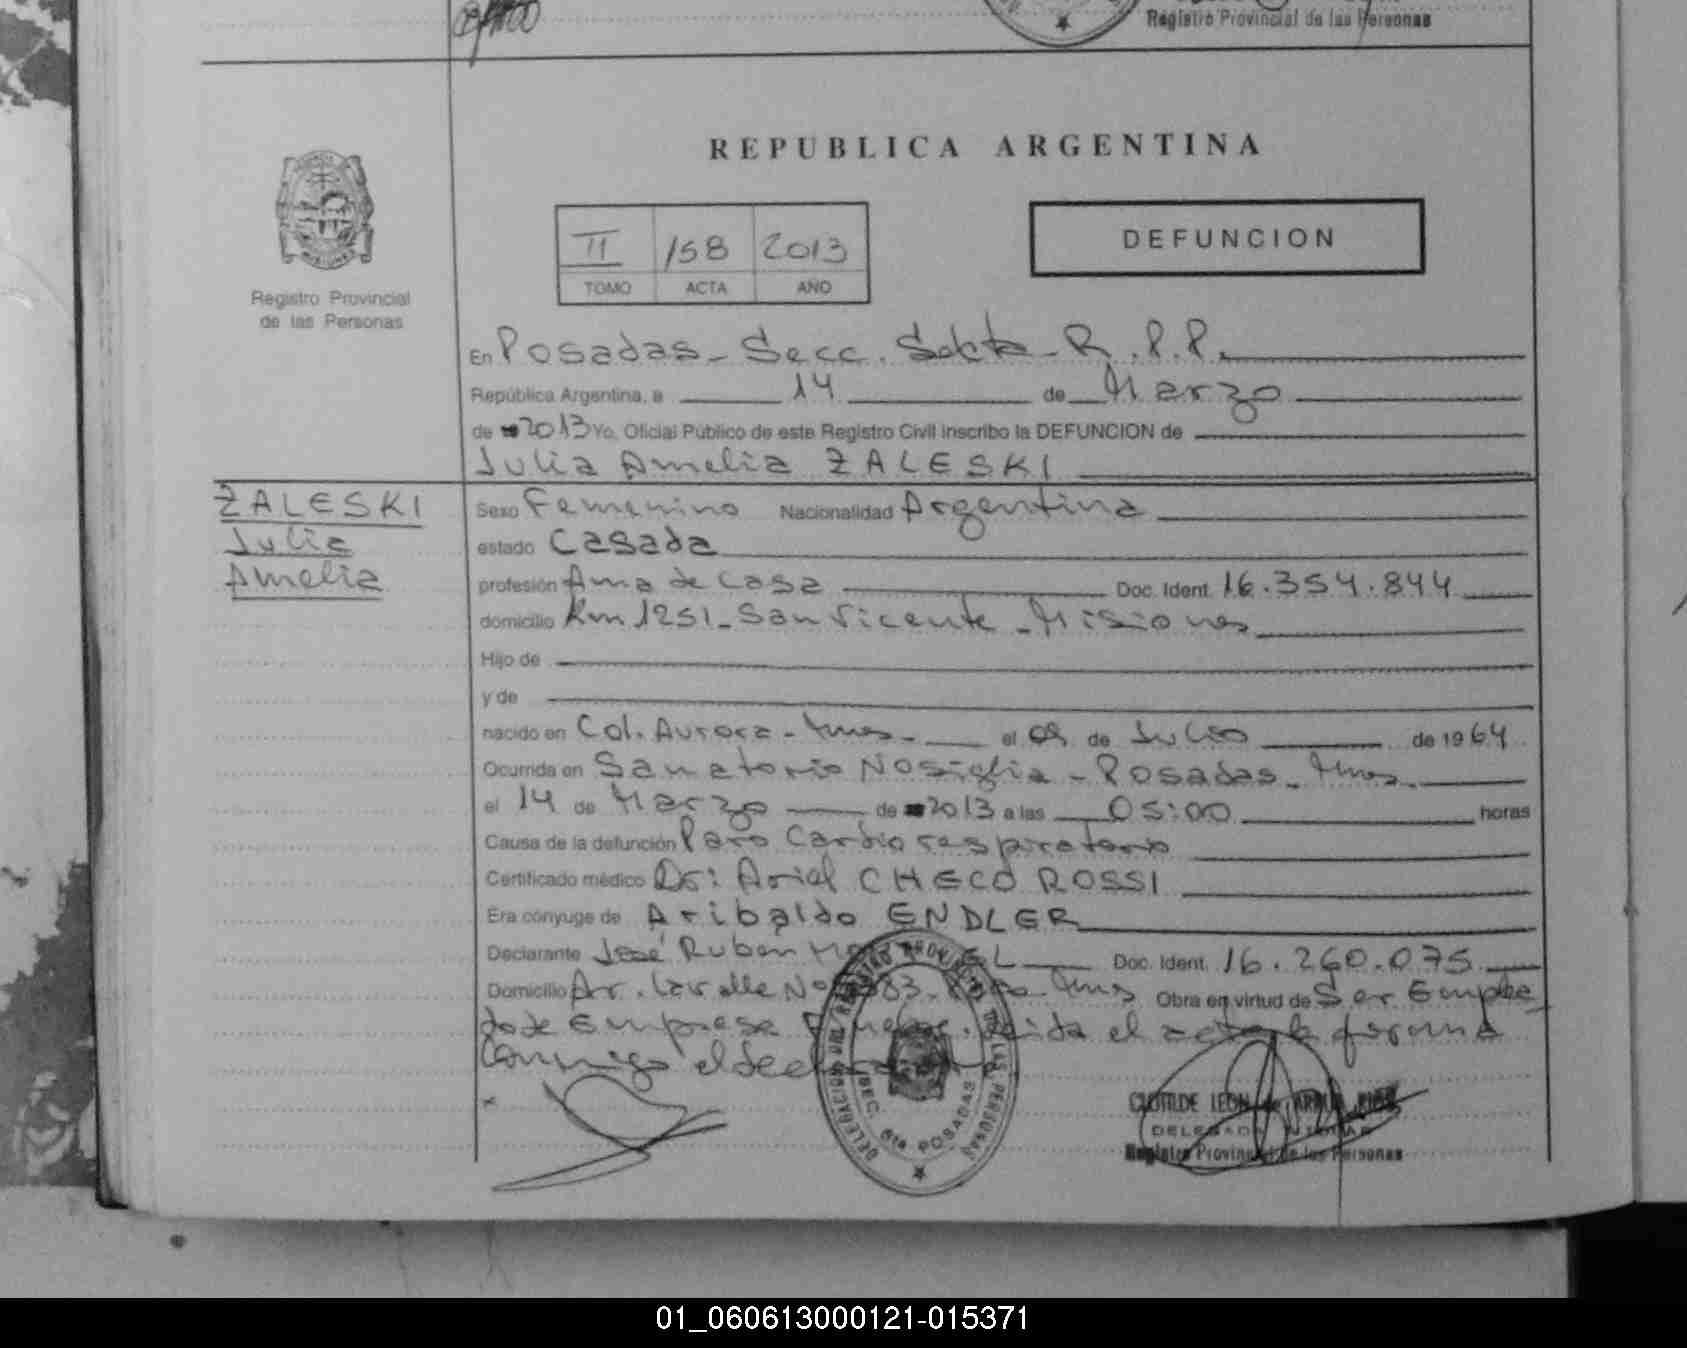 Registro Provincial de las Personas
REPUBLICA ARGENTINA
II 158 2013
TOMO ACTA AÑO
DEFUNCION
MISIONES
Registro Provincial
de las Personas
En Posadas - Secc. Sexta - R.P.P.
República Argentina, a 14 de Marzo
de 2013 Yo, Oficial Público de este Registro Civil inscribo la DEFUNCION de
Julia Amelia ZALESKI
ZALESKI
Julia
Amelia
Sexo Femenino Nacionalidad Argentina
estado Casada
profesión Ama de Casa Doc. Ident. 16.354.844
domicilio Km 1251 - San Vicente - Misiones
Hijo de
y de
nacido en Col. Aurora - Mnes - el 09 de Julio de 1964
Ocurrida en Sanatorio Nosiglia - Posadas - Mnes -
el 14 de Marzo de 2013 a las 05:00 horas
Causa de la defunción Paro Cardiorespiratorio
Certificado médico Dr: Ariel CHECO ROSSI
Era cónyuge de Aribaldo ENDLER
Declarante José Ruben Doc. Ident. 16.260.075
Domicilio Av. Lavalle No Mnes Obra en virtud de Ser Emplea
do de Empresa el acta la firma
Conmigo el
DELEGACION DEL REGISTRO PROVINCIAL DE LAS PERSONAS
SEC. 6ta POSADAS
CLOTILDE LEON de
DELEGADA
Registro Provincial de las Personas
01_060613000121-015371